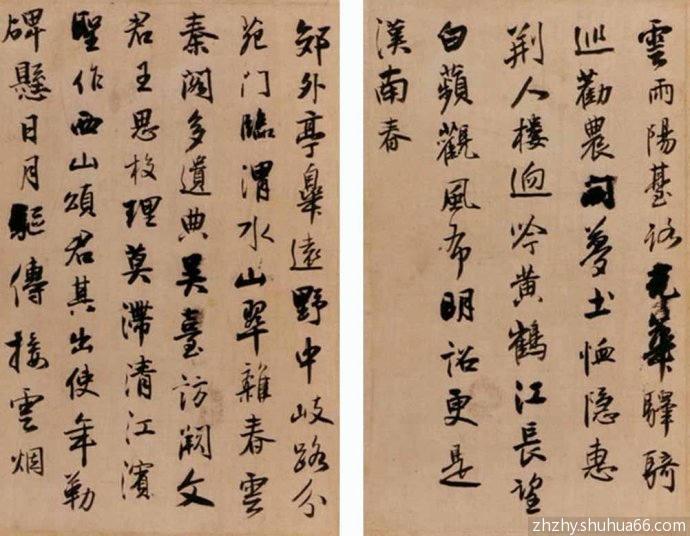 雲雨陽臺路光華驛騎
巡勸農開夢土恤隱惠
荆人樓迥吟黄鶴江長望
白蘋觀風布明詔更是
漢南春
郊外亭皋遠野中岐路分
苑门臨渭水山翠雜春雲
秦閣多遺典吴臺訪闕文
君王思校理莫滯清江濱
聖作西山頌君其出使年勒
碑懸日月驅傳接雲烟
zhzhy.shuhua66.com